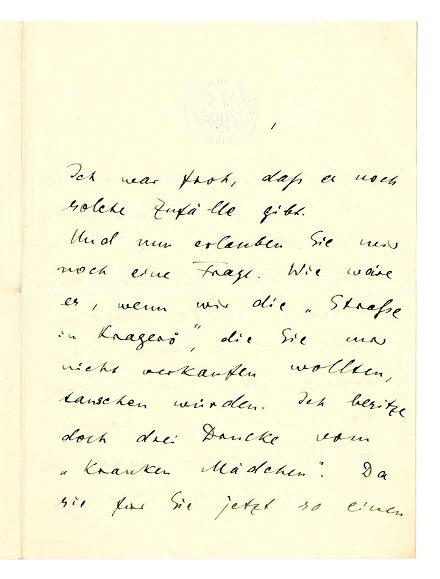 Ich war froh, daß es noch
solche Zufälle gibt.
Und nun erlauben Sie mir
noch eine Frage. Wie wäre
es, wenn wir die „Straße
in Kragerö“, die Sie mir
nicht verkaufen wollten,
tauschen würden. Ich besitze
doch drei Drucke vom
„Kranken Mädchen“. Da
sie für Sie jetzt so einen